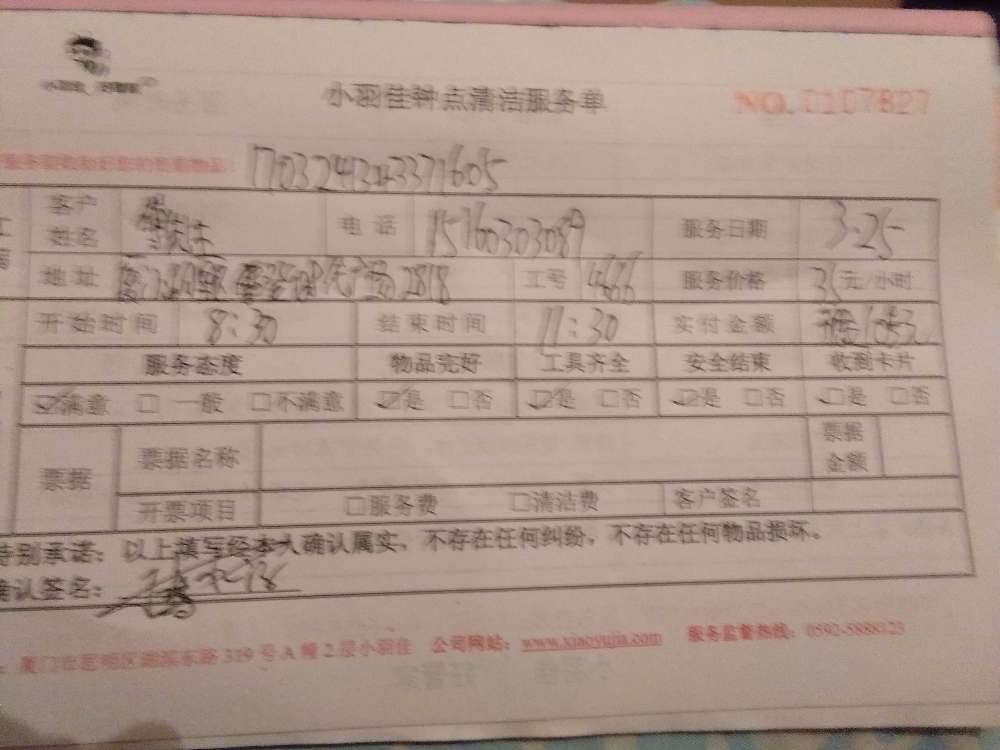 小羽佳钟点清洁服务单 NO. 0107827
客户姓名 电话 15160303089 服务日期 3.25
地址 2818 工号 4666 服务价格 35元/小时
开始时间 8:30 结束时间 11:30 实付金额 105元
服务态度 物品完好 工具齐全 安全结束 收到卡片
☑满意 □一般 □不满意 ☑是 □否 ☑是 □否 ☑是 □否 ☑是 □否
票据 票据名称 票据金额
开票项目 □服务费 □清洁费 客户签名
特别承诺:以上填写经本人确认属实,不存在任何纠纷,不存在任何物品损坏。
确认签名:
厦门市思明区湖滨东路319号A幢2层小羽佳 公司网站:www.xiaoyujia.com 服务监督热线:0592-5888123